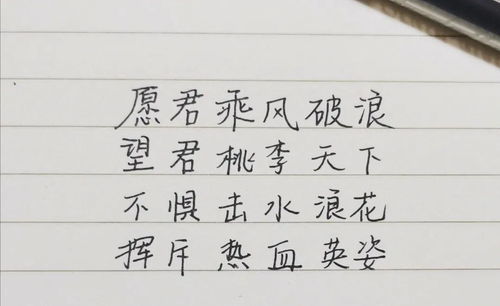 愿君乘风破浪
望君桃李天下
不惧击水浪花
挥斥热血英姿